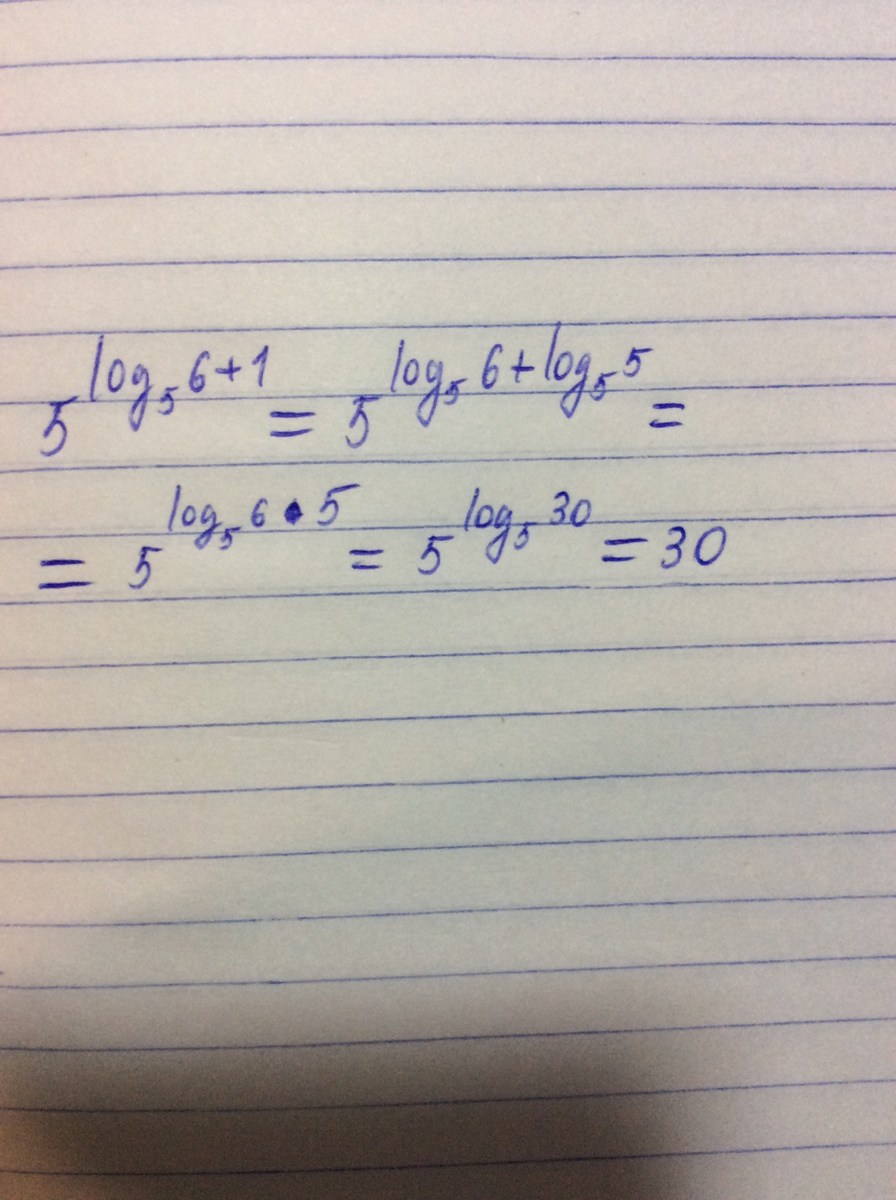 5^{log_5 6+1} = 5^{log_5 6+log_5 5} =
= 5^{log_5 6 • 5} = 5^{log_5 30} = 30